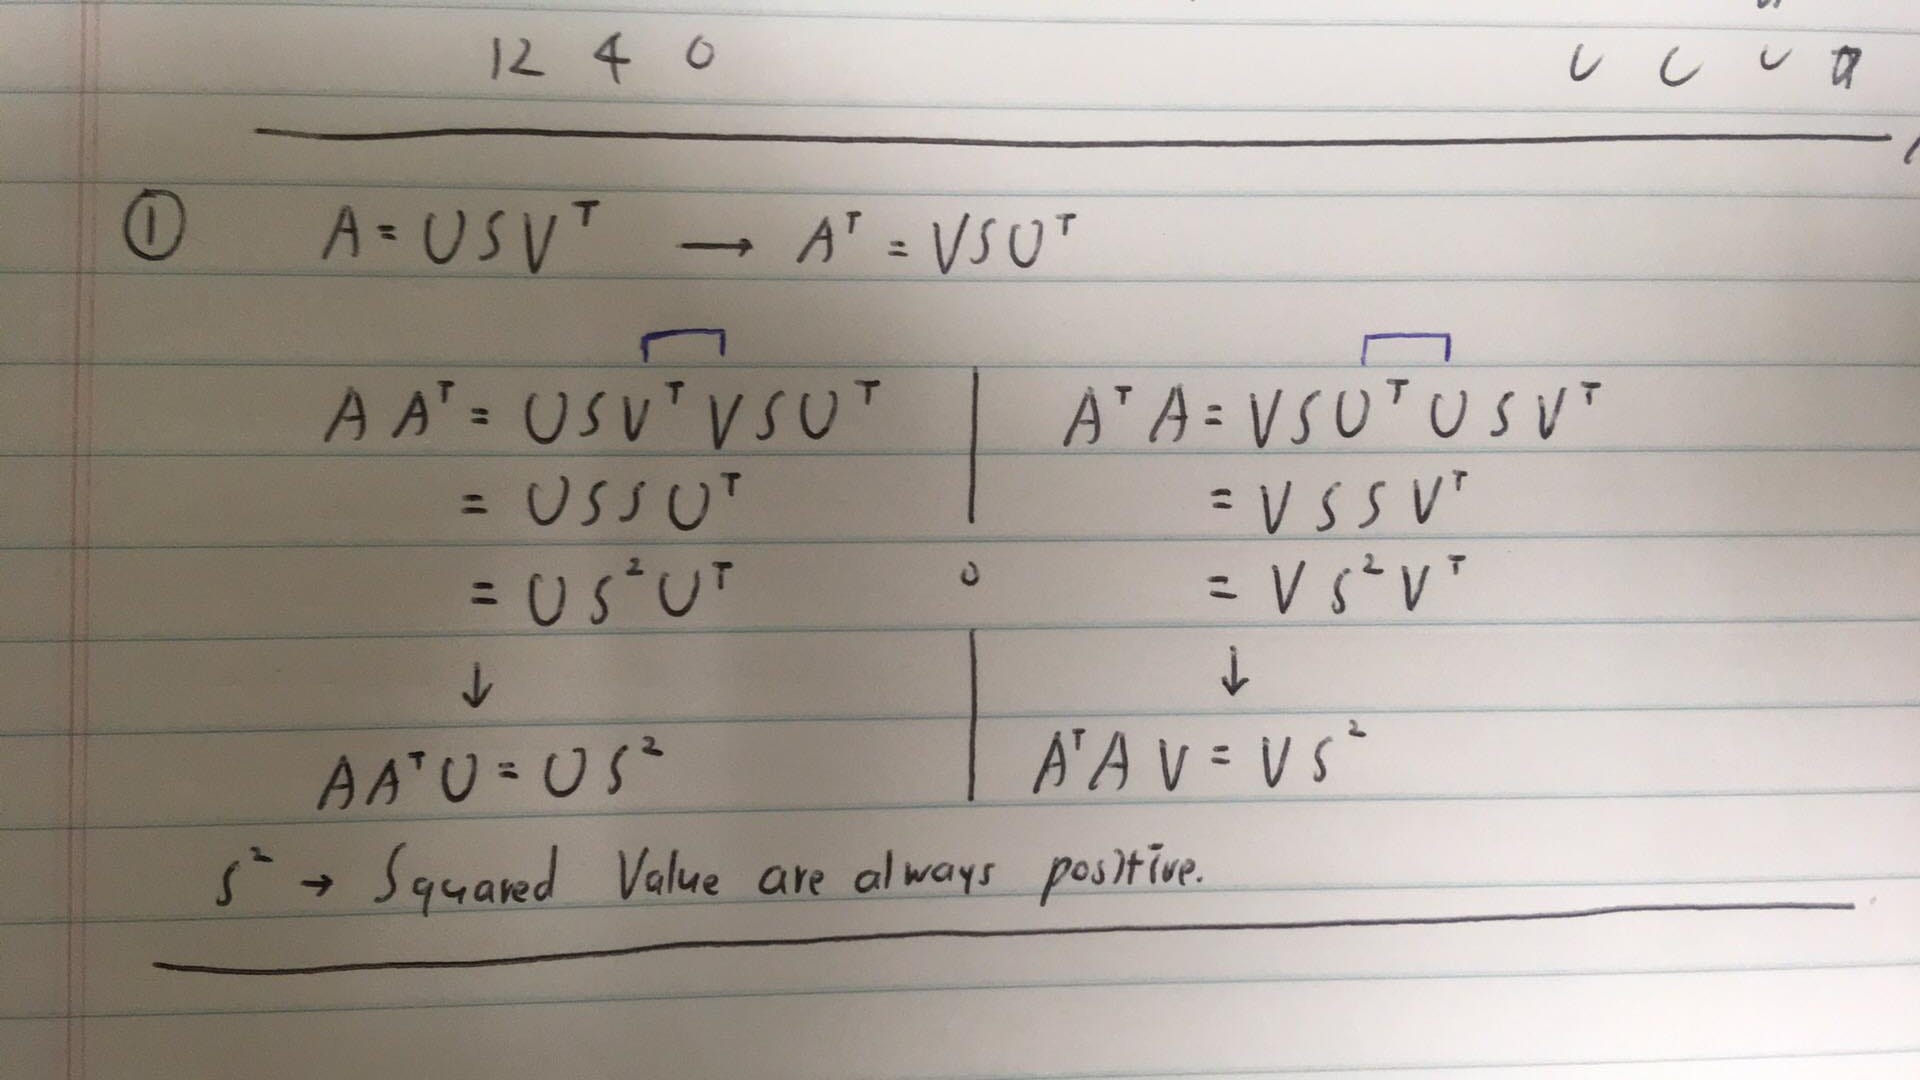 12 4 0
① A = USVᵀ → Aᵀ = VSUᵀ
A Aᵀ = USVᵀVSUᵀ
= USSUᵀ
= US²Uᵀ
↓
AAᵀU = US²
AᵀA = VSUᵀUSVᵀ
= VSSVᵀ
= VS²Vᵀ
↓
AᵀAV = VS²
S² → Squared Value are always positive.